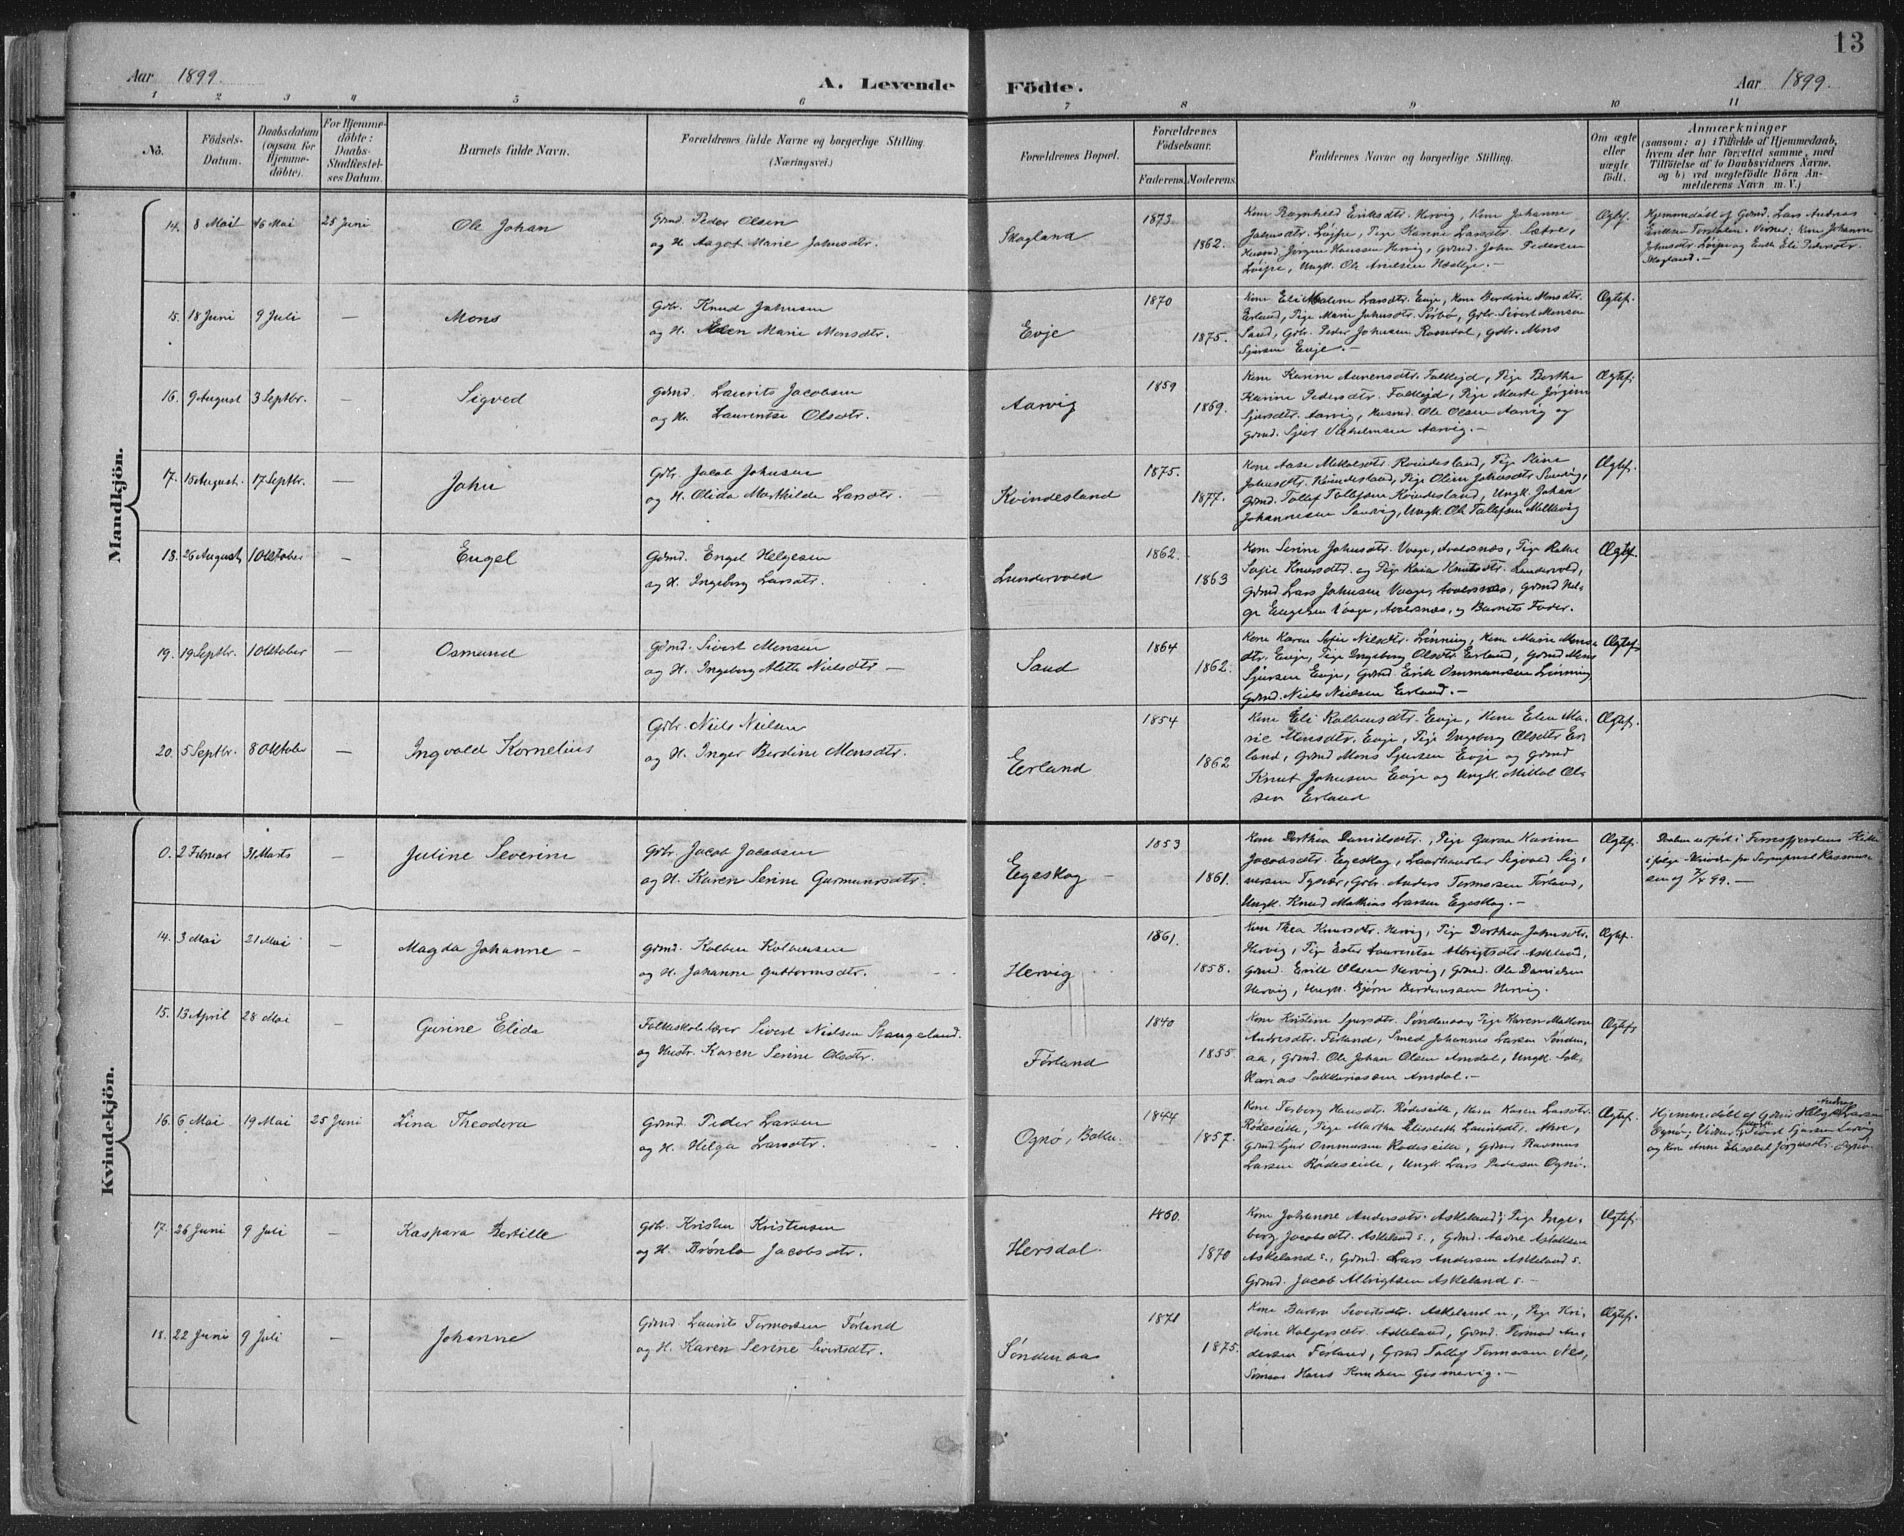 13
Aar 1899. A. Levende Födte. Aar 1899.
1 2 3 4 5 6 7 8 9 10 11
No. Födsels-Datum. Daabsdatum (ogsaa for Hjemmedöbte). For Hjemmedöbte: Daabs-Stadfæstelses Datum. Barnets fulde Navn. Forældrenes fulde Navne og borgerlige Stilling (Næringsvei). Forældrenes Bopæl. Forældrenes Födselsaar. Faderens. Moderens. Faddernes Navne og borgerlige Stilling. Om ægte eller uægte födt. Anmærkninger
(saasom: a) i Tilfælde af Hjemmedaab,
hvem der har forrettet samme, med
Tilföielse af to Daabsvidners Navne,
og b) ved uægtefödte Börn Anmelderens Navn m. V.)
Mandkjön.
14. 8 Mai 16 Mai 25 Juni Ole Johan Gdmd. Peder Olsen
og H. Aagot Marie Johnsdtr. Skogland 1873. 1862. Kone Ragnhild Eriksdtr. Hervig, Kone Johanne
Johnsdtr. Löipe, Pige Karine Larsdtr. Sætre,
Husmd. Jörgen Hanssen Hervig, Gdmd. John Pedersen
Löipe, Ungk. Ole Ægtef. Hjemmedöbt af Gdmd. Lars Andreas
Eriksen Vidner: Kone Johanne
Johnsdtr. Löipe og Enke Eli Pedersdtr.
Skogland.—
15. 18 Juni 9 Juli — Mons Gdbr. Knud Johnsen
og H. Elen Marie Monsdtr. Evje 1870 1875. Kone Eli Malene Larsdtr. Evje, Kone Berdine Monsdtr.
Erland, Pige Marie Johnsdtr. Sörbö, Gdbr. Sivert Monsen
Sand, Gdbr. Peder Johnsen Ramsdal, Gdbr. Mons
Sjursen Evje.— Ægtef.
16. 9 August 3 Septbr. — Sigved Gdmd. Laurits Jacobsen
og H. Laurentse Olsdtr. Aarvig 1859 1869. Kone Karine Pige Berthe
Karine Pedersdtr. Pige Marte Jörgine
Sjursdtr. Aarvig, Husmd. Ole Olsen Aarvig og
Gdmd. Sjur Vilhelmsen Aarvig.— Ægtef.
17. 15 August. 17 Septbr. — John Gdbr. Jacob Johnsen
og H. Olida Mathilde Larsdtr. — Kvindesland 1875. 1877. Kone Aase Mikkelsdtr. Kvindesland, Pige Stine
Johnsdtr. Kvindesland, Pige Oline Johnsdtr. Sandvig,
Gdmd. Tollef Tollefsen Kvindesland, Ungk. Johan
Johannesen Sandvig, Ungk. Ole Tollefsen Ægtef.
18. 26 August 1 Oktober — Engel Gdmd. Engel Helgesen
og H. Ingeborg Larsdtr. Lundervold 1862. 1863 Kone Serine Johnsdtr. Vaage, Avaldsnæs, Pige
Sofie Knudsdtr. og Pige Kaia Knutsdtr. Lundervold,
Gdmd. Lars Johnsen Vaage, Gdmd Helge
Engelsen Vaage, og Barnets Fader. Ægtef.
19. 19 Septbr. 1 Oktober — Osmund Gdmd. Sivert Monsen
og H. Ingeborg Mette Nielsdtr — Sand 1864 1862. Kone Karen Sofie Nielsdtr. Lönning, Kone Marie Monsdtr.
Evje, Pige Ingeborg Olsdtr Erland, Gdmd Mons
Sjursen Evje, Gdmd. Erik Lönning
Gdmd. Niels Nielsen Erland.— Ægtef.
20. 5 Septbr. 8 Oktober — Ingvald Kornelius Gdbr. Niels Nielsen
og H. Inger Berdine Monsdtr. Eerland 1854 1862 Kone Eli Kolbensdtr. Evje, Kone Elen Marie
Monsdtr. Evje, Pige Ingeborg Olsdtr Erland,
Gdmd Mons Sjursen Evje og Gdmd
Knut Johnsen Evje og Ungk. Mikkel Olsen
Erland Ægtef.
Kvindekjön.
0. 2 Februar 31 Marts — Juline Severine Gdbr. Jacob Jacobsen
og H. Karen Serine Gurmunsdtr. Egeskog — 1853 1861. Kone Dorthea Danielsdtr., Pige Karine
Jacobsdtr. Egeskog, Landhandler Sigvald Sigversen
Gdbr. Anders Tormorsen Förland,
Ungk. Knud Mathias Larsen Egeskog.— Ægtef. Daaben udfört i
99.—
14. 3 Mai 21 Mai — Magda Johanne — Gdmd. Kolben Kolbensen
og H. Johanne Guttormsdtr. Hervig 1861. 1858. Kone Thea Knudsdtr. Hervig, Pige Dorthea Johnsdtr.
Hervig, Pige Ester Laurentse Albrigtsdtr. Askeland,
Gdmd. Erik Olsen Hervig, Gdmd. Ole Danielsen
Hervig, Ungk. Björn Hervig. Ægtef.
15. 13 April 28 Mai — Gurine Elida Folkeskolelærer Sivert Nielsen Stangeland.
og Hustr. Karen Serine Olsdtr. Förland 1840 1855. Kone Kristine Sjursdtr. Söndenaa, Pige Karen Malene
Andresdtr. Förland, Smed Johannes Larsen Söndenaa,
Gdmd. Ole Johan Olsen Amdal, Ungk. Sakkarias
Sakkariassen Amdal.— Ægtef.
16. 6 Mai 19 Mai 25 Juni Lina Theodora Gdmd. Peder Larsen
og H. Helga Larsdtr. Ognö, Bokn. 1844 1857. Kone Torborg Hansdtr. Rödeseike, Kone Karen Larsdtr.
Rödeseike, Pige Martha Elisabeth Lauritsdtr. Aare,
Gdmd Gjer Ommunsen Rödeseike, Gdmd Rasmus
Larsen Rödeseide, Ungk. Lars Pedersen Ognö. Ægtef. Hjemmedöbt af Gdmd Helge Larsen
Ognö; Vidner: Sivert Sjursen
og Kone Anne Elisabet Jörgensdtr. Ognö.
17. 26 Juni 9 Juli — Kaspara Bertille Gdbr. Kristen Kristensen
og H. Brönla Jacobsdtr. Hersdal. 1860. 1870 Kone Johanne Andersdtr. Askeland, Pige Ingeborg
Jacobsdtr. Askeland s., Gdmd. Aadne
Askeland s., Gdmd. Lars Andersen Askeland s.
Gdmd. Jacob Albrigtsen Askeland s.— Ægtef.
18. 22 Juni 9 Juli — Johanne Gdmd. Laurits Tormorsen Förland
og H. Karen Serine Sivertsdtr. Söndenaa 1871 1875. Kone Barbra Sivertsdtr. Askeland n., Pige Kristine
Holgersdtr. Askeland, Gdmd. Tormod Andersen
Förland, Gdmd Tollef Tormorsen Næs,
Sömand Hans Knudsen Gismervig.— Ægtef.